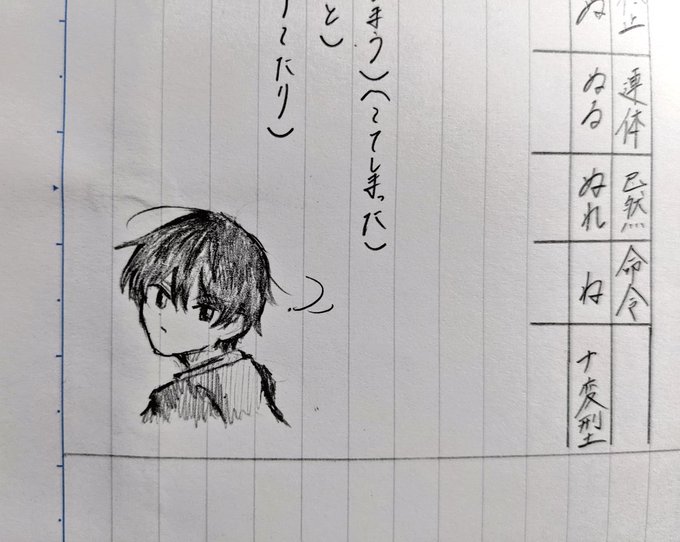 止 連体 已然 命令
ぬ ぬる ぬれ ね ナ変型
まう)(〜てしまった)
と)
〜たり)